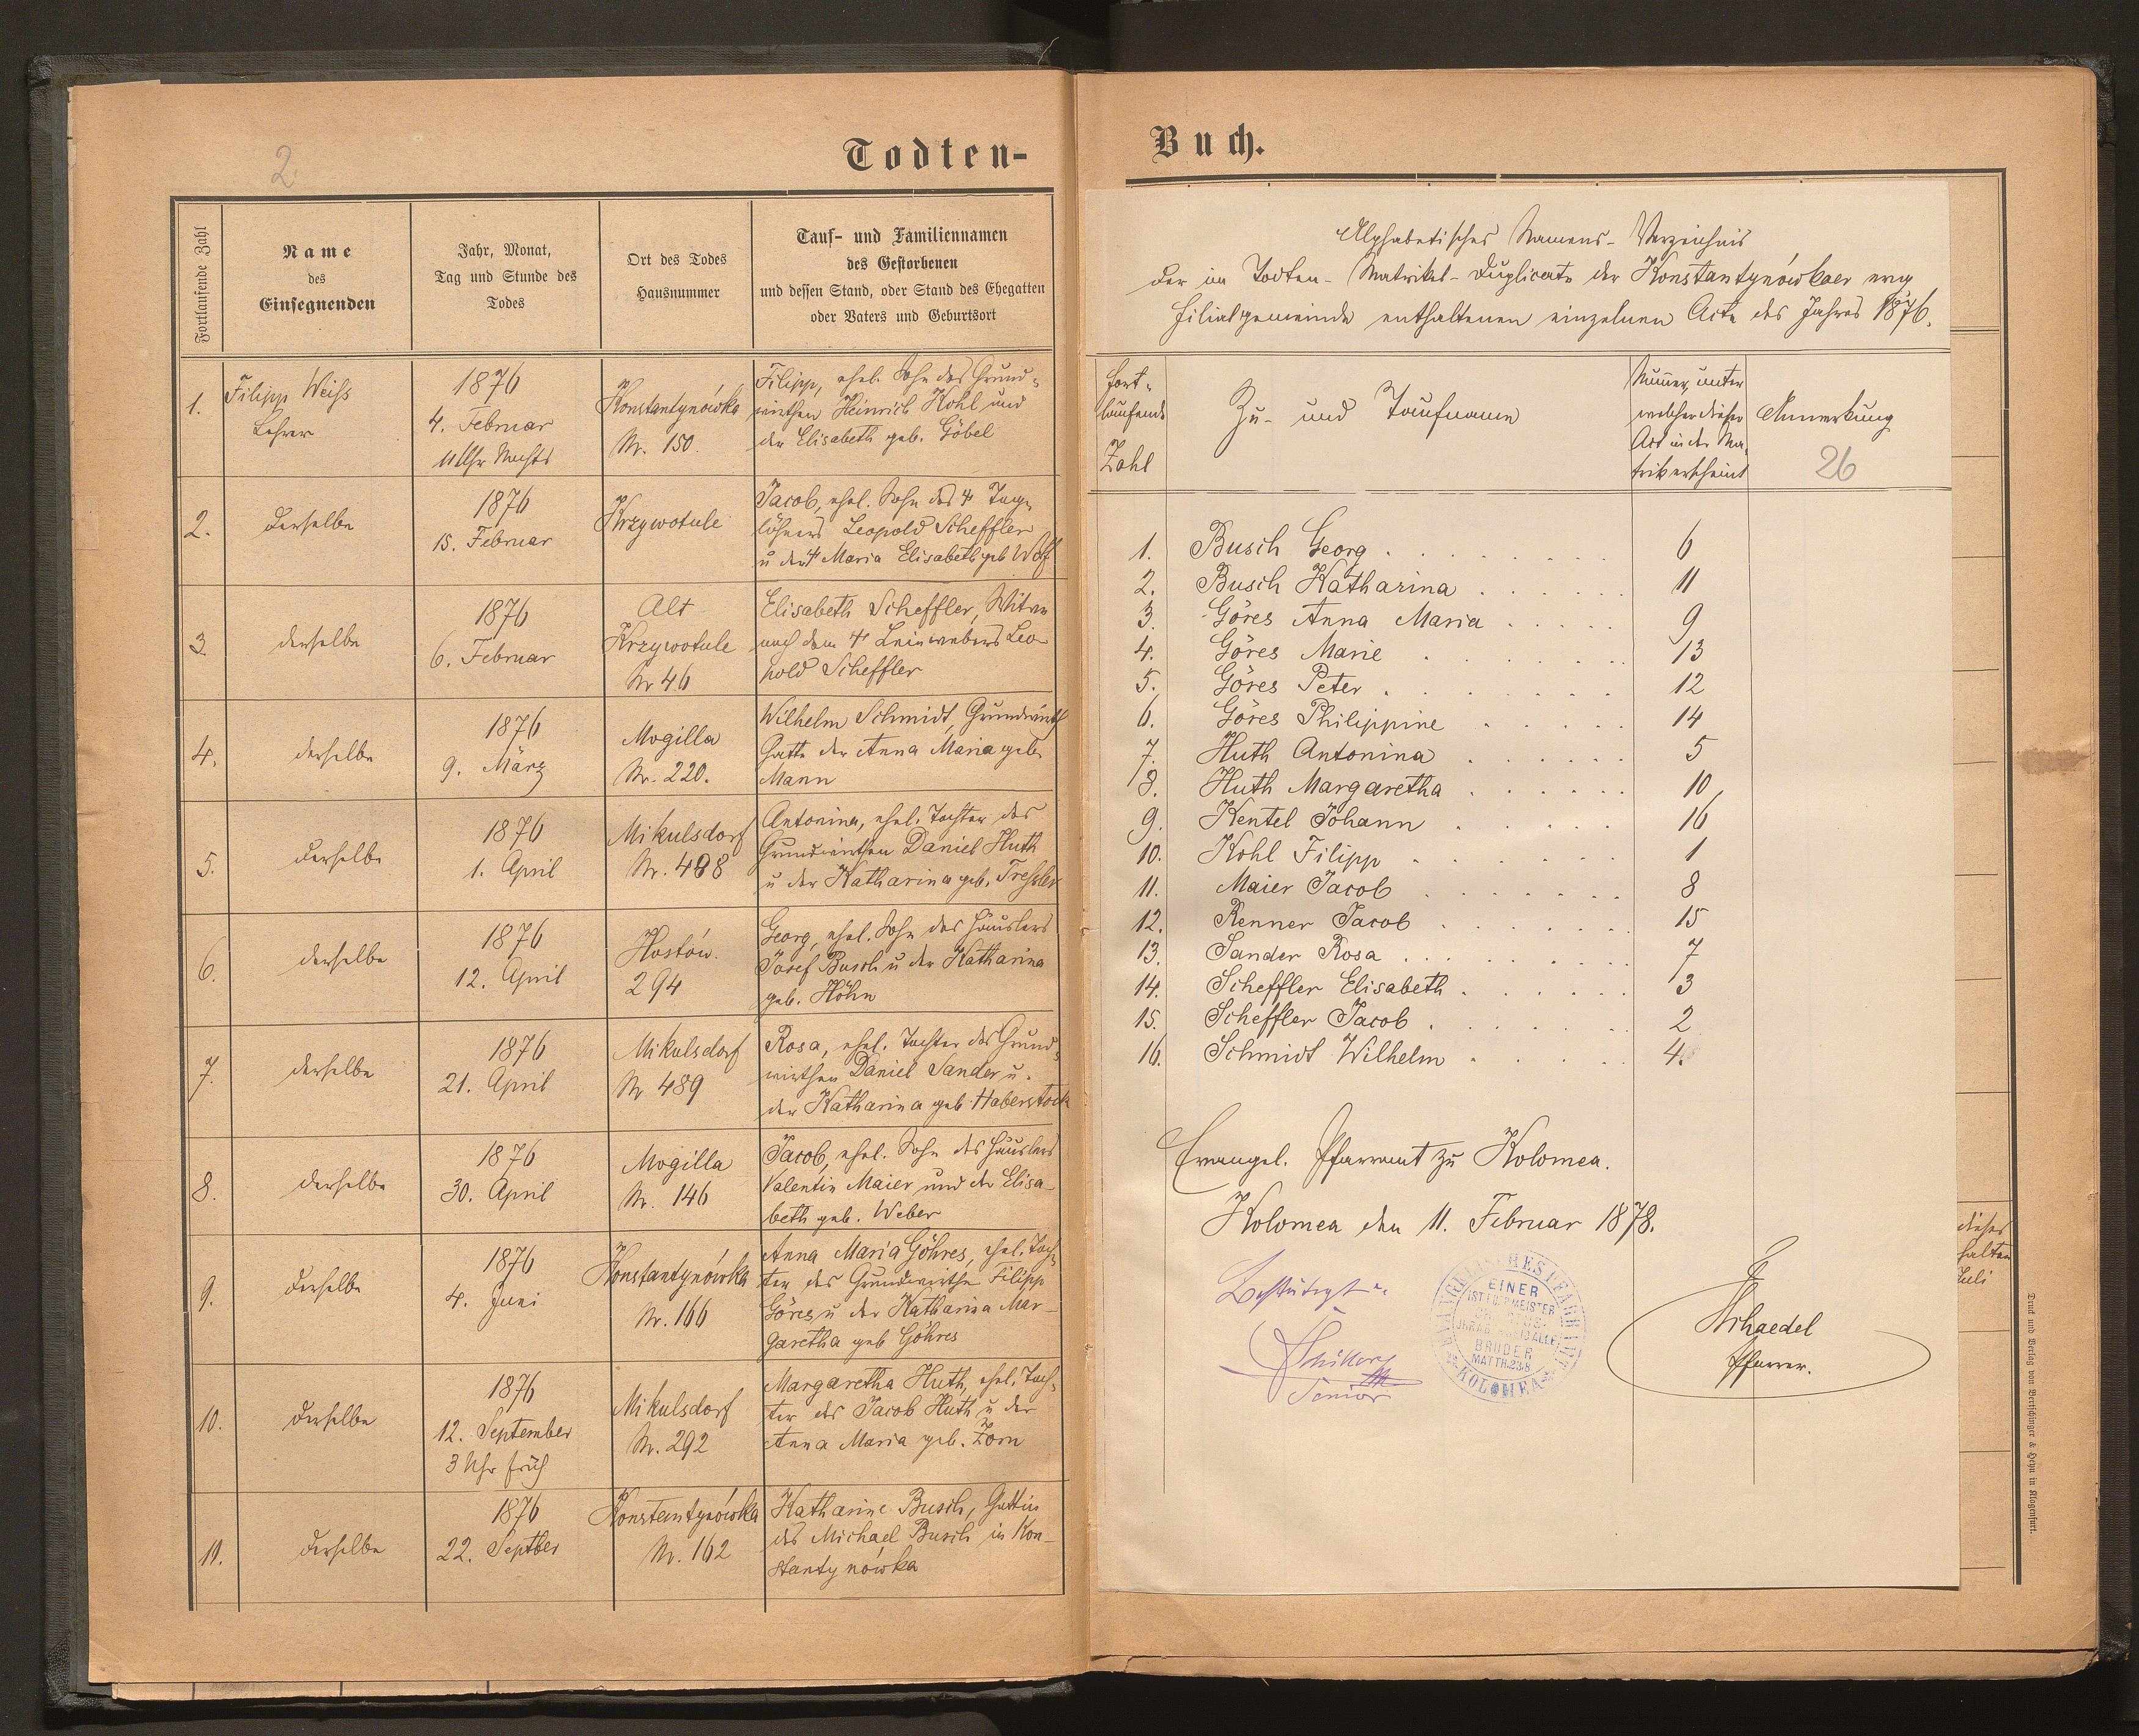 2.
Todten-
Fortlaufende Zahl
Name
des
Einsegnenden
Jahr, Monat,
Tag und Stunde des
Todes
Ort des Todes
Hausnummer
Tauf- und Familiennamen
des Gestorbenen
und dessen Stand, oder Stand des Ehegatten
oder Vaters und Geburtsort
1.
Filipp Weiss
Lehrer
1876
4. Februar
11 Uhr Nachts
Konstantynówka
Nr. 150.
Filipp, ehel. Sohn des Grund-
wirthen Heinrich Kohl und
der Elisabeth geb. Göbel
2.
derselbe
1876
15. Februar
Krzywotule
Jacob, ehel. Sohn des † Tage-
löhners Leopold Scheffler
u der † Maria Elisabeth geb Wolf
3.
derselbe
1876
6. Februar
Alt
Krzywotule
Nr 46
Elisabeth Scheffler, Witwe
nach dem † Leinwebers Leo-
pold Scheffler
4.
derselbe
1876
9. März
Mogilla
Nr. 220.
Wilhelm Schmidt, Grundwirth
Gatte der Anna Maria geb.
Mann
5.
derselbe
1876
1. April
Mikulsdorf
Nr. 488
Antonina, ehel. Tochter des
Grundwirthen Daniel Huth
u der Katharina geb. Tressler
6.
derselbe
1876
12. April
Hostów.
294
Georg, ehel. Sohn des Häuslers
Josef Busch u der Katharina
geb. Höhn
7.
derselbe
1876
21. April
Mikulsdorf
Nr 489
Rosa, ehel. Tochter des Grund-
wirthen Daniel Sander u.
der Katharina geb Haberstock
8.
derselbe
1876
30. April
Mogilla
Nr. 146
Jacob, ehel. Sohn des Häuslers
Valentin Maier und der Elisa-
beth geb. Weber
9.
derselbe
1876
4. Juni
Konstantynówka
Nr. 166
Anna Maria Göhres, ehel. Toch-
ter des Grundwirthe Filipp
Göres u der Katharina Mar-
garetha geb Göhres
10.
derselbe
1876
12. September
3 Uhr früh
Mikulsdorf
Nr. 292
Margaretha Huth, ehel. Toch-
ter des Jacob Huth u der
Anna Maria geb. Zorn
11.
derselbe
1876
22. Septber
Konstantynówka
Nr. 162
Katharine Busch, Gattin
des Michael Busch in Kon-
stantynówka
Buch.
Alphabetisches Namens-Verzeichnis
der im Todten-Matrikel-Duplicate der Konstantynówkaer evg
Filialgemeinde enthaltenen einzelnen Acte des Jahres 1876.
Fort-
laufende
Zahl
Zu- und Taufname
Numer, unter
welcher dieser
Act in der Ma-
trik erscheint
Anmerkung
26
1. Busch Georg . . . . . . . . 6
2. Busch Katharina . . . . . . 11
3. Göres Anna Maria . . . . . 9
4. Göres Marie . . . . . . . 13
5. Göres Peter . . . . . . . 12
6. Göres Philippine . . . . . 14
7. Huth Antonina . . . . . . 5
8. Huth Margaretha . . . . . . 10
9. Kentel Johann . . . . . 16
10. Kohl Filipp . . . . . . . 1
11. Maier Jacob . . . . . . . 8
12. Renner Jacob . . . . . . . 15
13. Sander Rosa . . . . . . . . 7
14. Scheffler Elisabeth . . . . . . 3
15. Scheffler Jacob . . . . . . . 2
16. Schmidt Wilhelm . . . . . 4.
Evangel. Pfarramt zu Kolomea.
Kolomea den 11. Februar 1878.
Bestätigt
Senior
EINER
IST EUER MEISTER
BRÜDER
MATTH.23.8.
KOLOMEA
Schaedel
Pfarrer.
dieses
halten
Juli
Druck und Verlag von Bertschinger & Heyn in Klagenfurt.